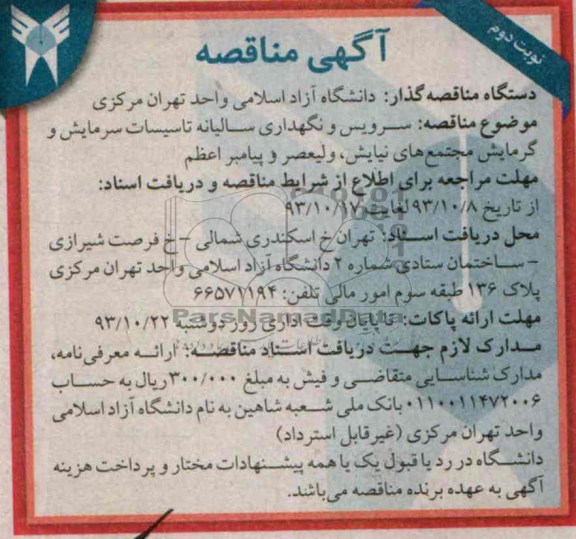 نوبت دوم
آگهی مناقصه
دستگاه مناقصه گذار: دانشگاه آزاد اسلامی واحد تهران مرکزی
موضوع مناقصه: سرویس و نگهداری سالیانه تاسیسات سرمایش و
گرمایش مجتمع های نیایش، ولیعصر و پیامبر اعظم
مهلت مراجعه برای اطلاع از شرایط مناقصه و دریافت اسناد:
از تاریخ ۹۳/۱۰/۸ لغایت ۹۳/۱۰/۱۷
محل دریافت اسناد: تهران خ اسکندری شمالی - خ فرصت شیرازی
- ساختمان ستادی شماره ۲ دانشگاه آزاد اسلامی واحد تهران مرکزی
پلاک ۱۳۶ طبقه سوم امور مالی تلفن: ۶۶۵۷۱۱۹۴
ParsNamadData
مهلت ارائه پاکات: تا پایان وقت اداری روز دوشنبه ۹۳/۱۰/۲۲
مدارک لازم جهت دریافت اسناد مناقصه: ارائه معرفی نامه،
مدارک شناسایی متقاضی و فیش به مبلغ ۳۰۰/۰۰۰ ریال به حساب
۰۱۱۰۰۱۱۴۷۲۰۰۶ بانک ملی شعبه شاهین به نام دانشگاه آزاد اسلامی
واحد تهران مرکزی (غیرقابل استرداد)
دانشگاه در رد یا قبول یک یا همه پیشنهادات مختار و پرداخت هزینه
آگهی به عهده برنده مناقصه می باشند.